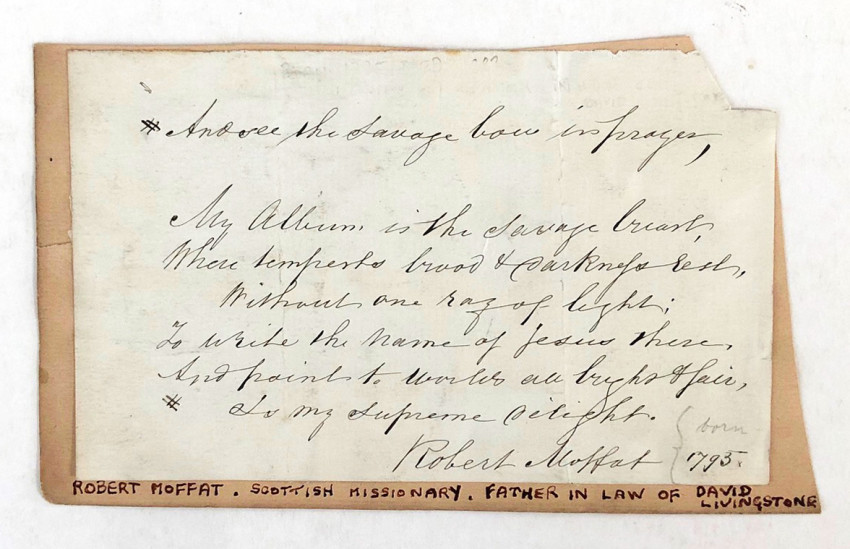 # And see the savage bow in prayer,
My Album is the savage breast,
Where tempests brood & darkness rest,
Without one ray of light;
To write the name of Jesus there,
And point to worlds all bright & fair,
# Is my supreme delight.
Robert Moffat { born
1795.
ROBERT MOFFAT. SCOTTISH MISSIONARY. FATHER IN LAW OF DAVID
LIVINGSTONE